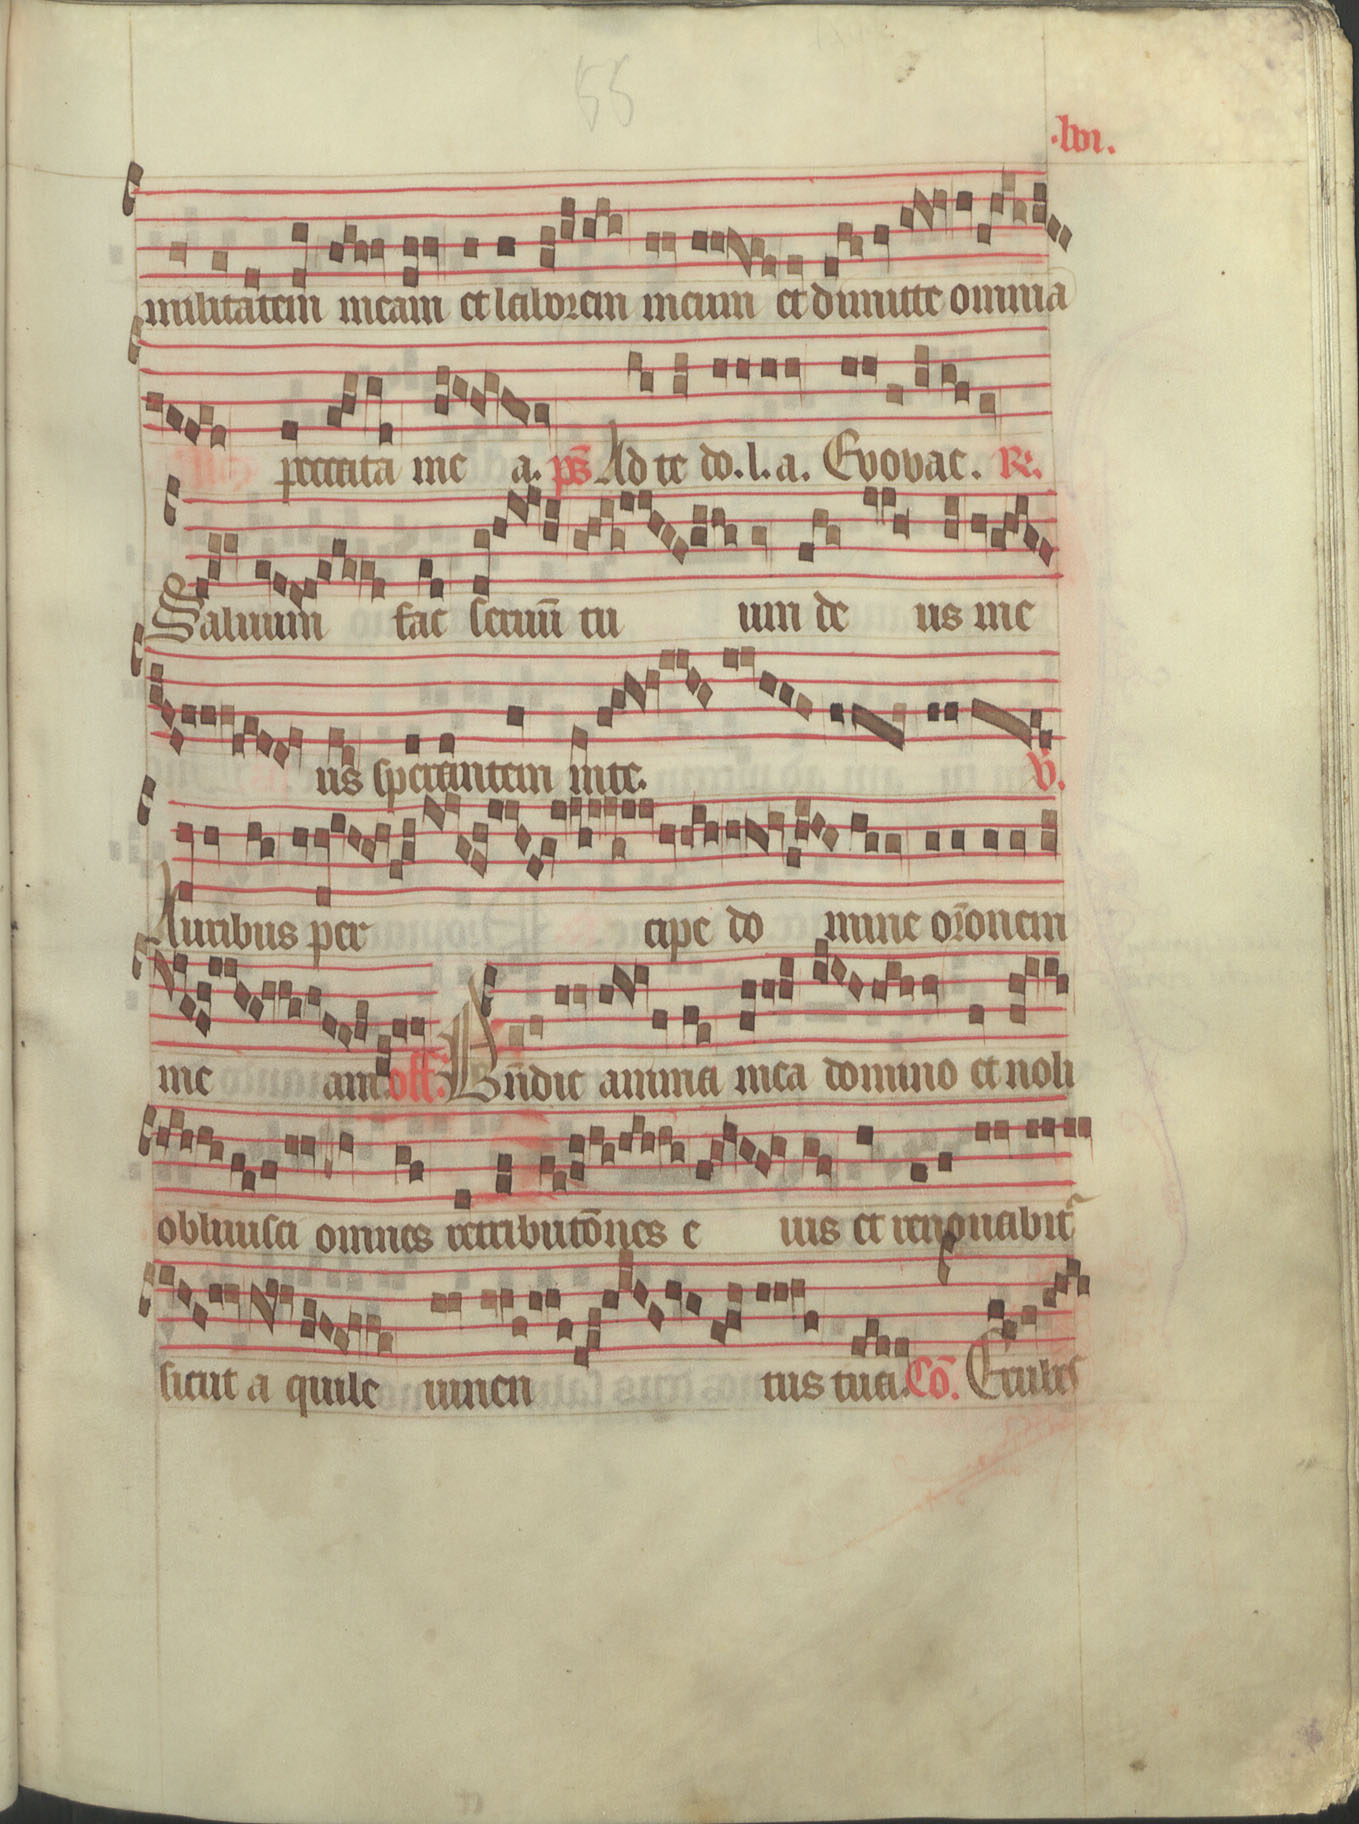 55
·lvi.
militatem meam et laborem meum et dimitte omnia
peccata me a. ps Ad te do. l. a. Evovae. R.
Saluum fac seruū tu um de us me
us sperantem in te. V.
Auribus per cipe do mine or̄onem
me am. off. Bn̄dic anima mea domino et noli
obliuisci omnes retributōnes e ius et renouabit᷑
sicut a quile iuuen tus tua. Cō.